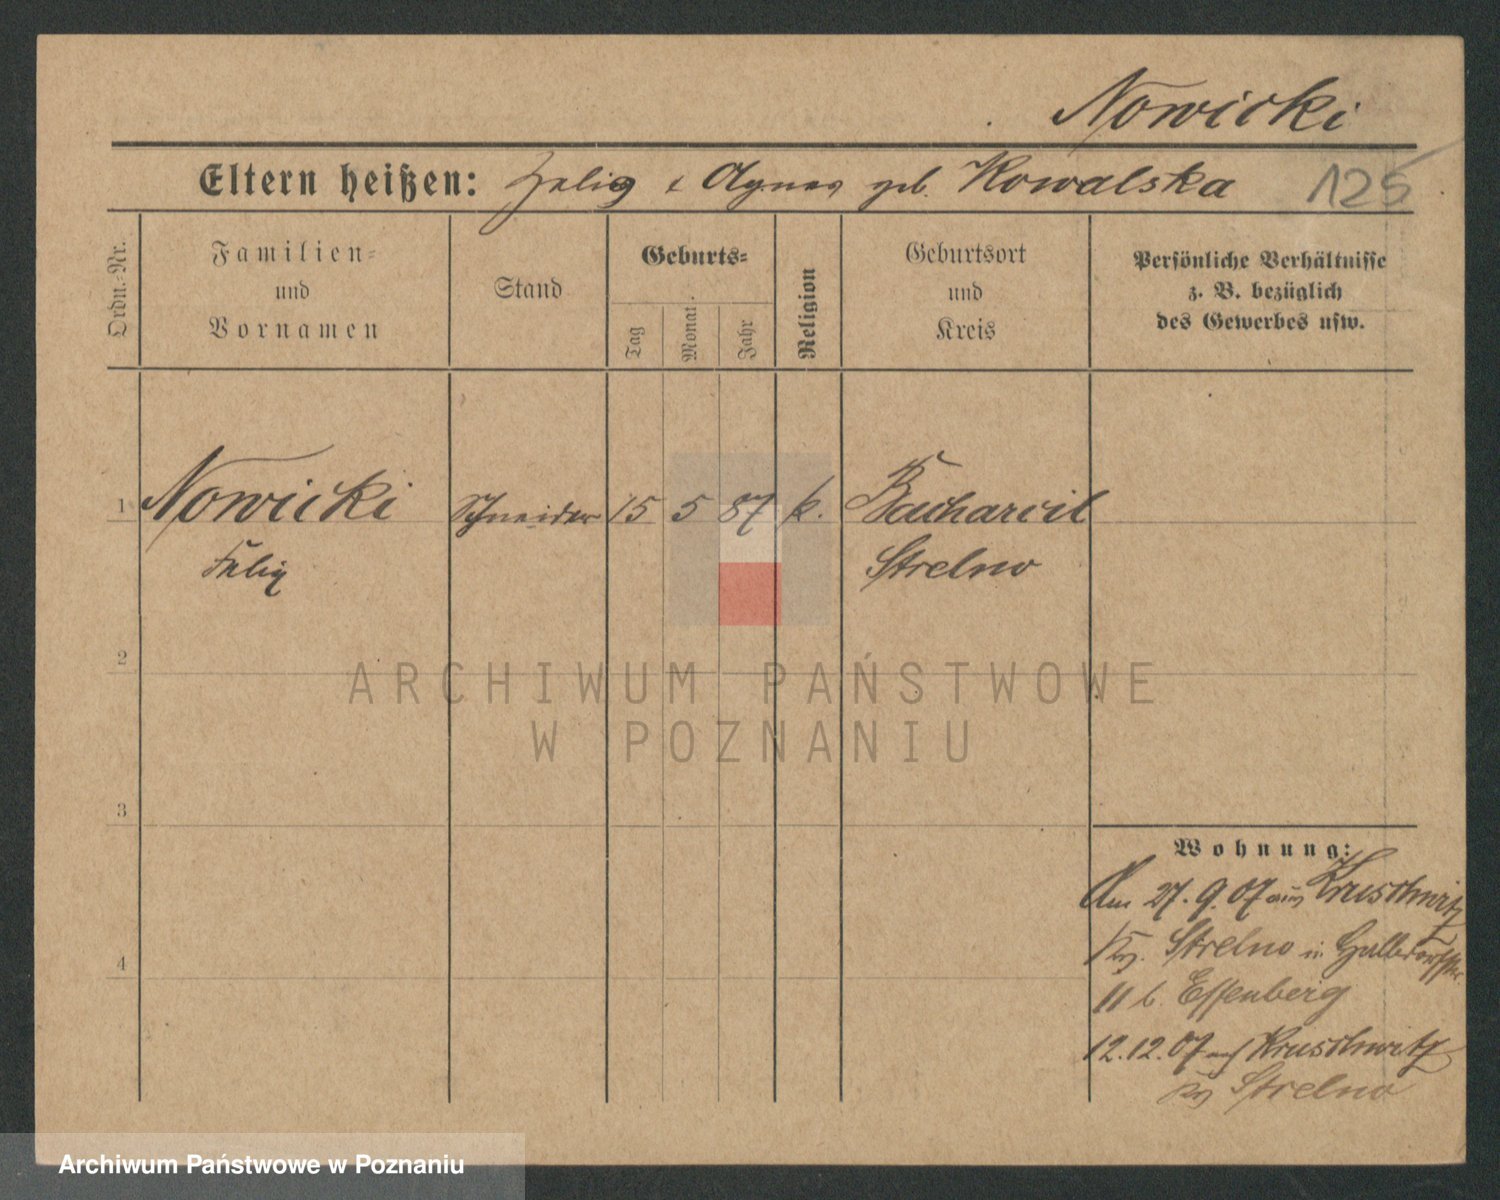 Nowicki
Eltern heißen: Felix & Agnes geb. Kowalska 125
Ordn.-Nr.
Familien-
und
Vornamen
Stand
Geburts-
Tag
Monat
Jahr
Religion
Geburtsort
und
Kreis
Persönliche Verhältnisse
z. B. bezüglich
des Gewerbes usw.
1 Nowicki Schneider 15 5 87 k.
Felix Strelno
2
ARCHIWUM PAŃSTWOWE
W POZNANIU
3
Wohnung:
Am 27.9.07 aus Kruschwitz
Kr. Strelno
4
11 b. Effenberg
12.12.07 nach Kruschwitz
Kr Strelno
Archiwum Państwowe w Poznaniu